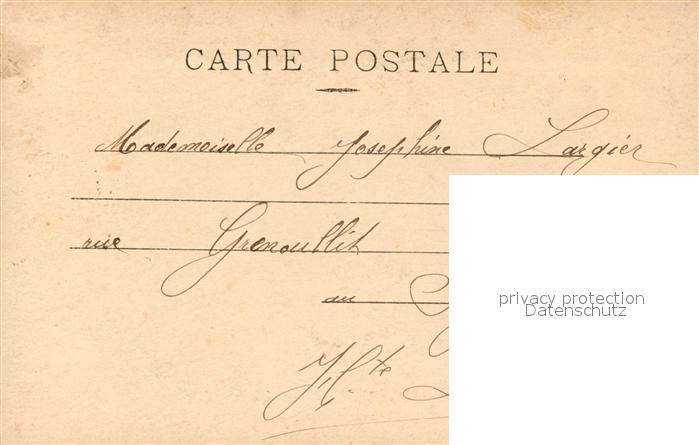 CARTE POSTALE
Mademoiselle Josephine Largier
rue Grenoullit
au
privacy protection
Datenschutz
H.te